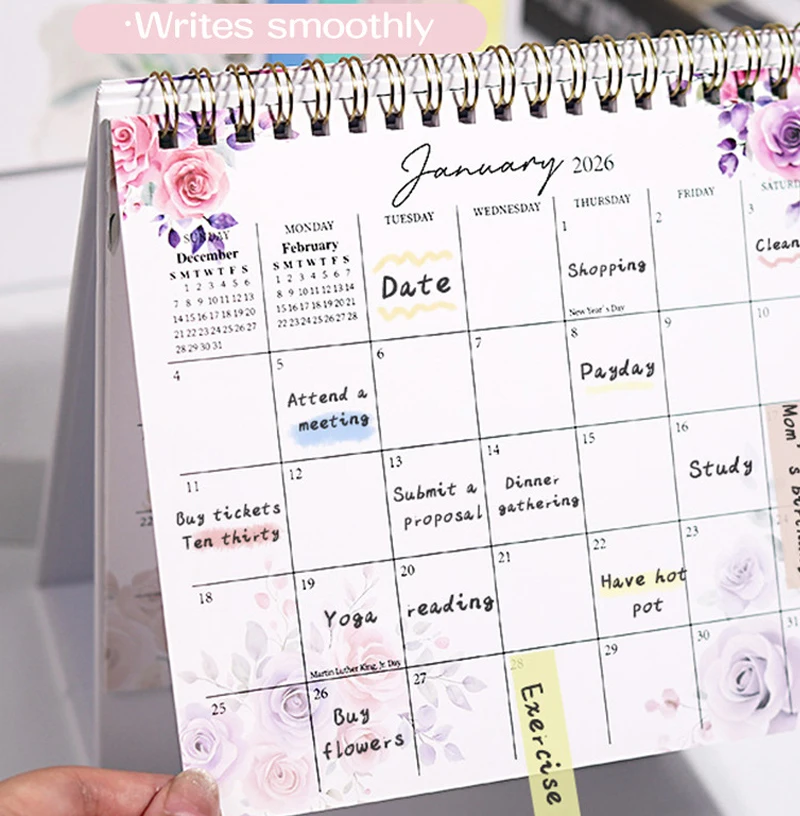 ·Writes smoothly
January 2026
SUNDAY MONDAY TUESDAY WEDNESDAY THURSDAY FRIDAY
December
S M T W T F S
1 2 3 4 5 6
7 8 9 10 11 12 13
14 15 16 17 18 19 20
21 22 23 24 25 26 27
28 29 30 31
February
S M T W T F S
1 2 3 4 5 6 7
8 9 10 11 12 13 14
15 16 17 18 19 20 21
22 23 24 25 26 27 28
Date
1
Shopping
New Year's Day
2
3
Clean
4
5
Attend a
meeting
6
7
8
Payday
9
10
11
Buy tickets
Ten thirty
12
13
Submit a
proposal
14
Dinner
gathering
15
16
Study
Mom's
18
19
Yoga
Martin Luther King, Jr. Day
20
reading
21
22
Have hot
pot
23
25
26
Buy
flowers
27
28
Exercise
29
30
31
22